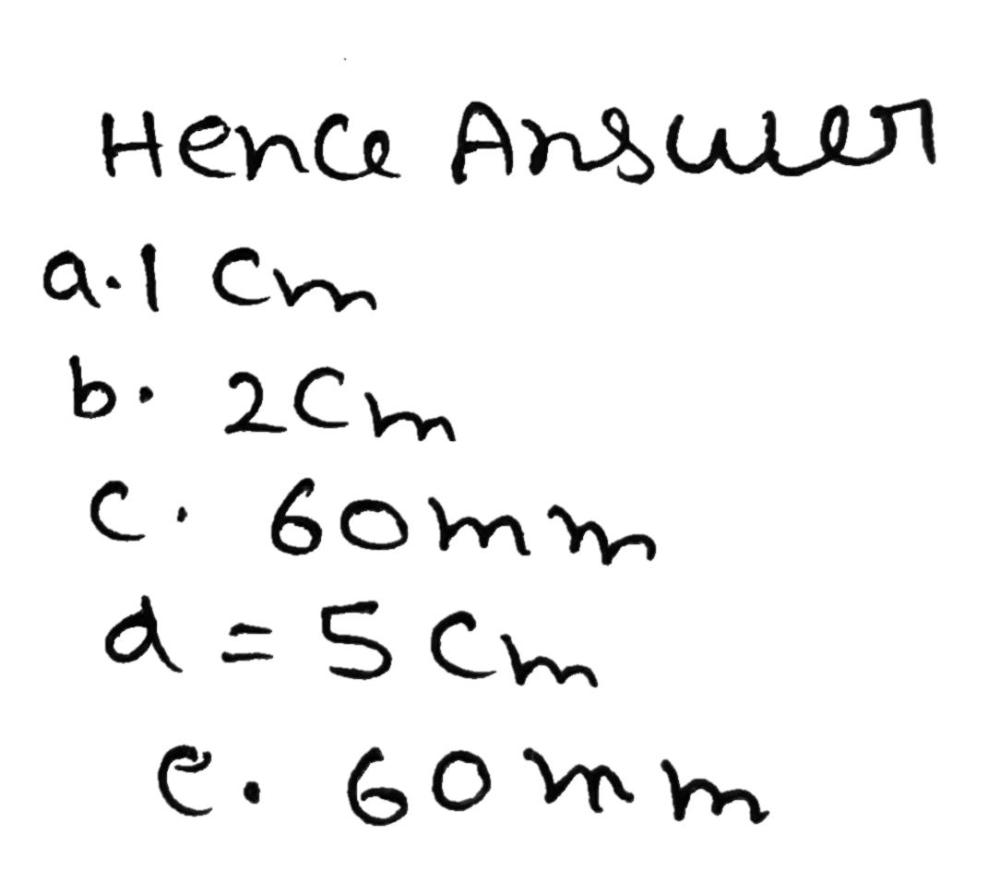 Hence Answer
a. 1 Cm
b. 2Cm
C. 60mm
d = 5 Cm
e. 60mm